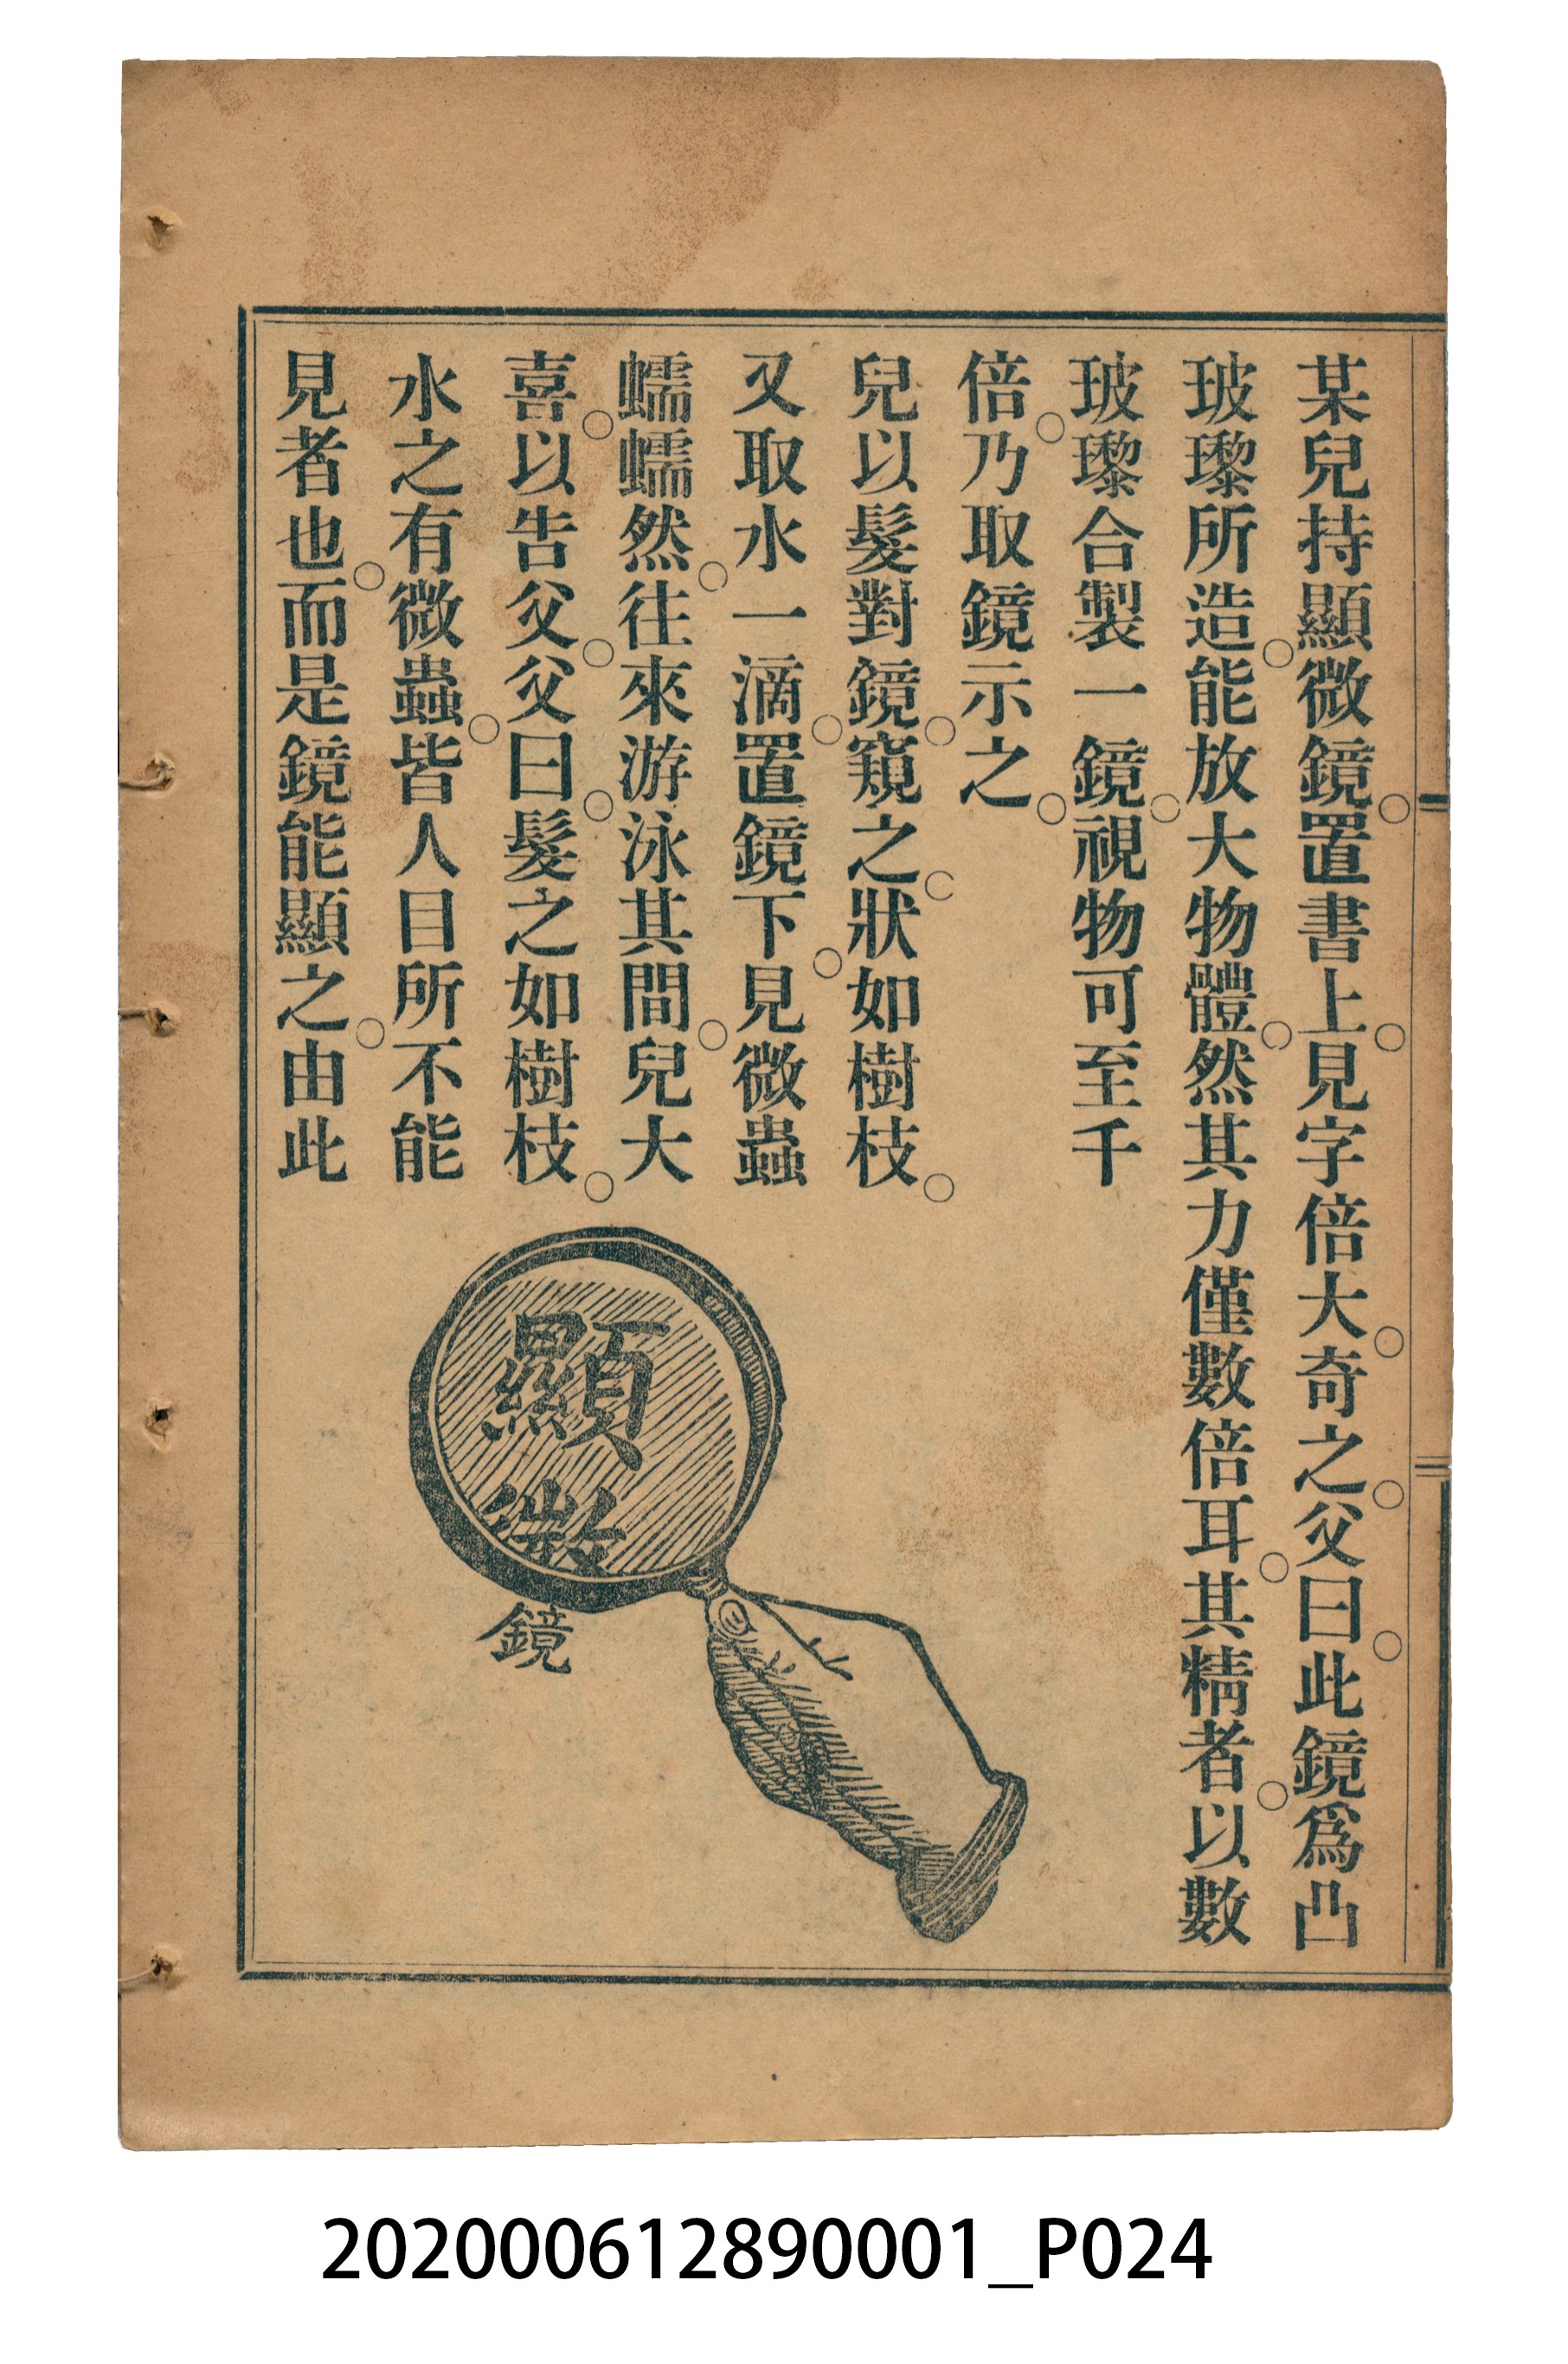 某兒持顯微鏡。置書上。見字倍大。奇之。父曰。此鏡爲凸
玻瓈所造。能放大物體。然其力僅數倍耳。其精者。以數
玻瓈合製一鏡。視物可至千
倍。乃取鏡示之。
兒以髮對鏡。窺之。狀如樹枝。
又取水一滴。置鏡下。見微蟲
蠕蠕然。往來游泳其間。兒大
喜。以告父。父曰。髮之如樹枝。
水之有微蟲。皆人目所不能
見者也。而是鏡能顯之。由此
顯
微
鏡
202000612890001_P024